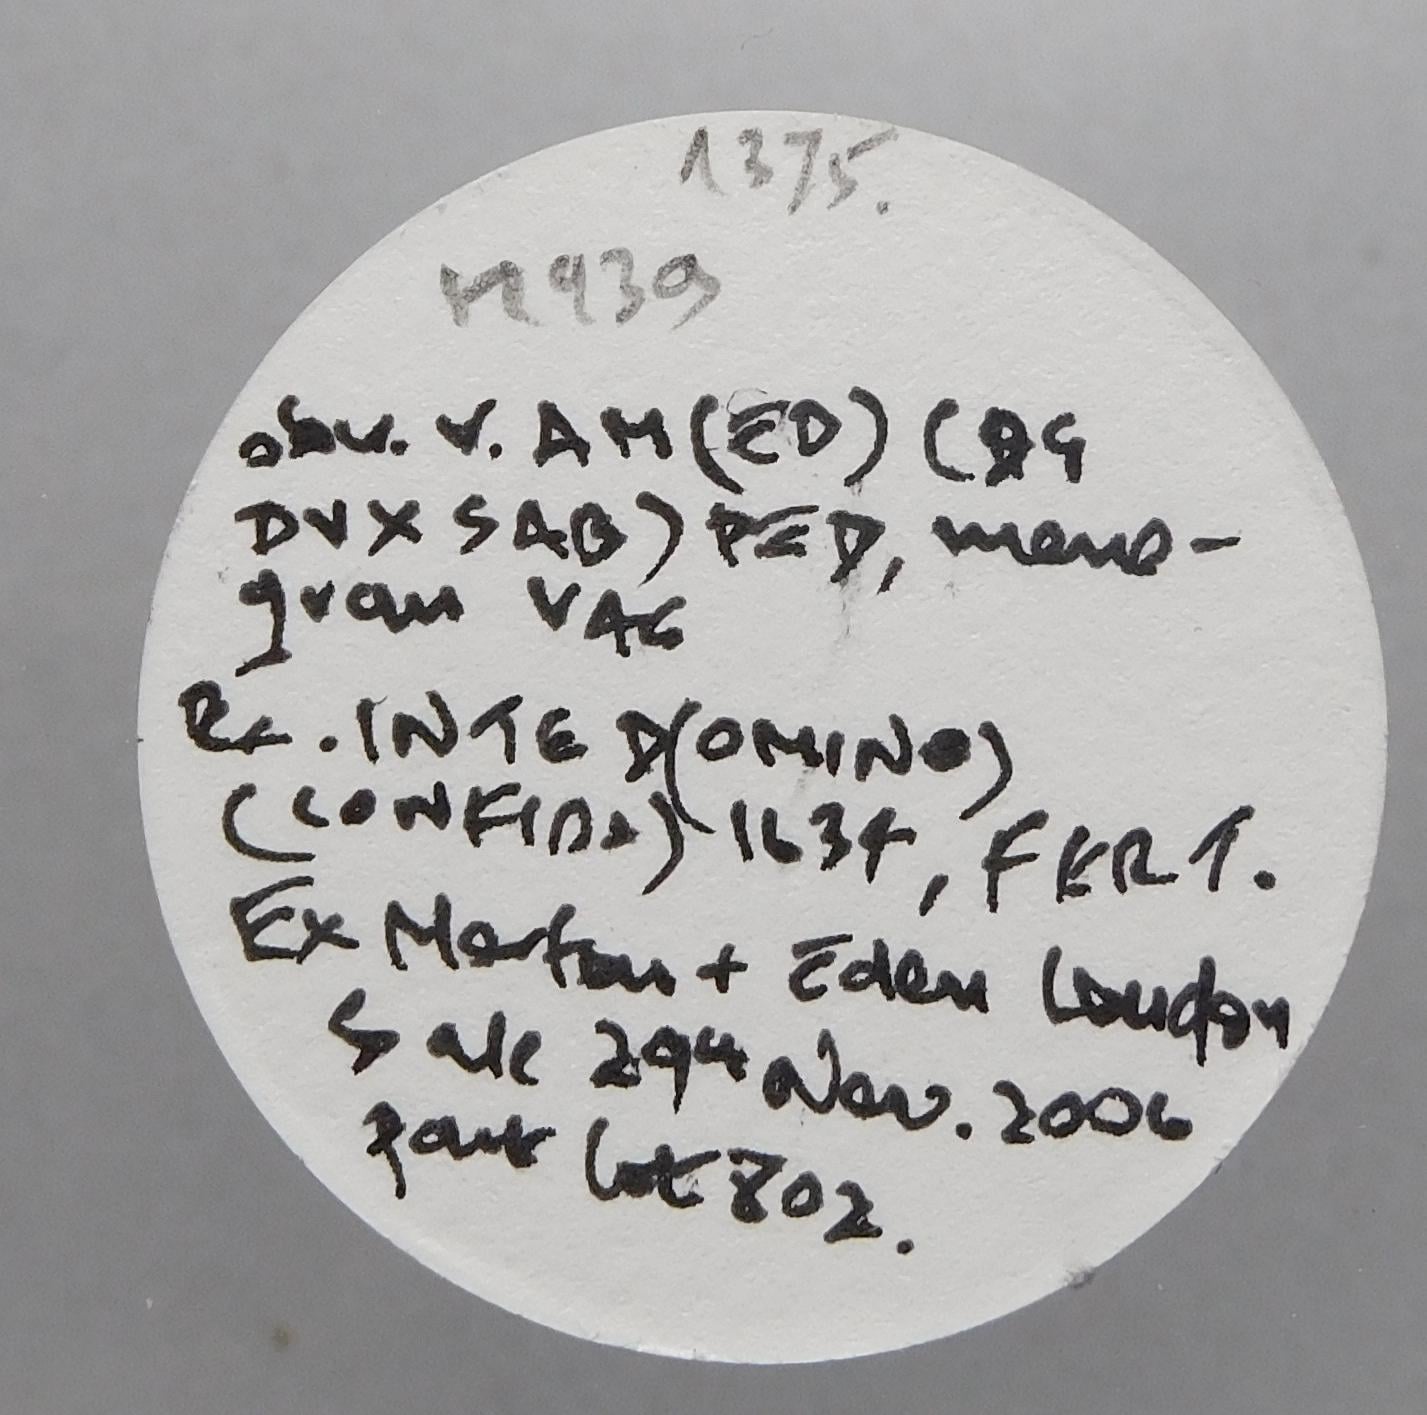 1375.
obv. V. AM(ED) (DG
DVX SAB) PED, mono-
gram VAG
Rx. IN TE D(OMINO)
(CONFIDO) 1634, FERT.
Ex Morton + Eden London
Sale 29th Nov. 2006
part lot 802.